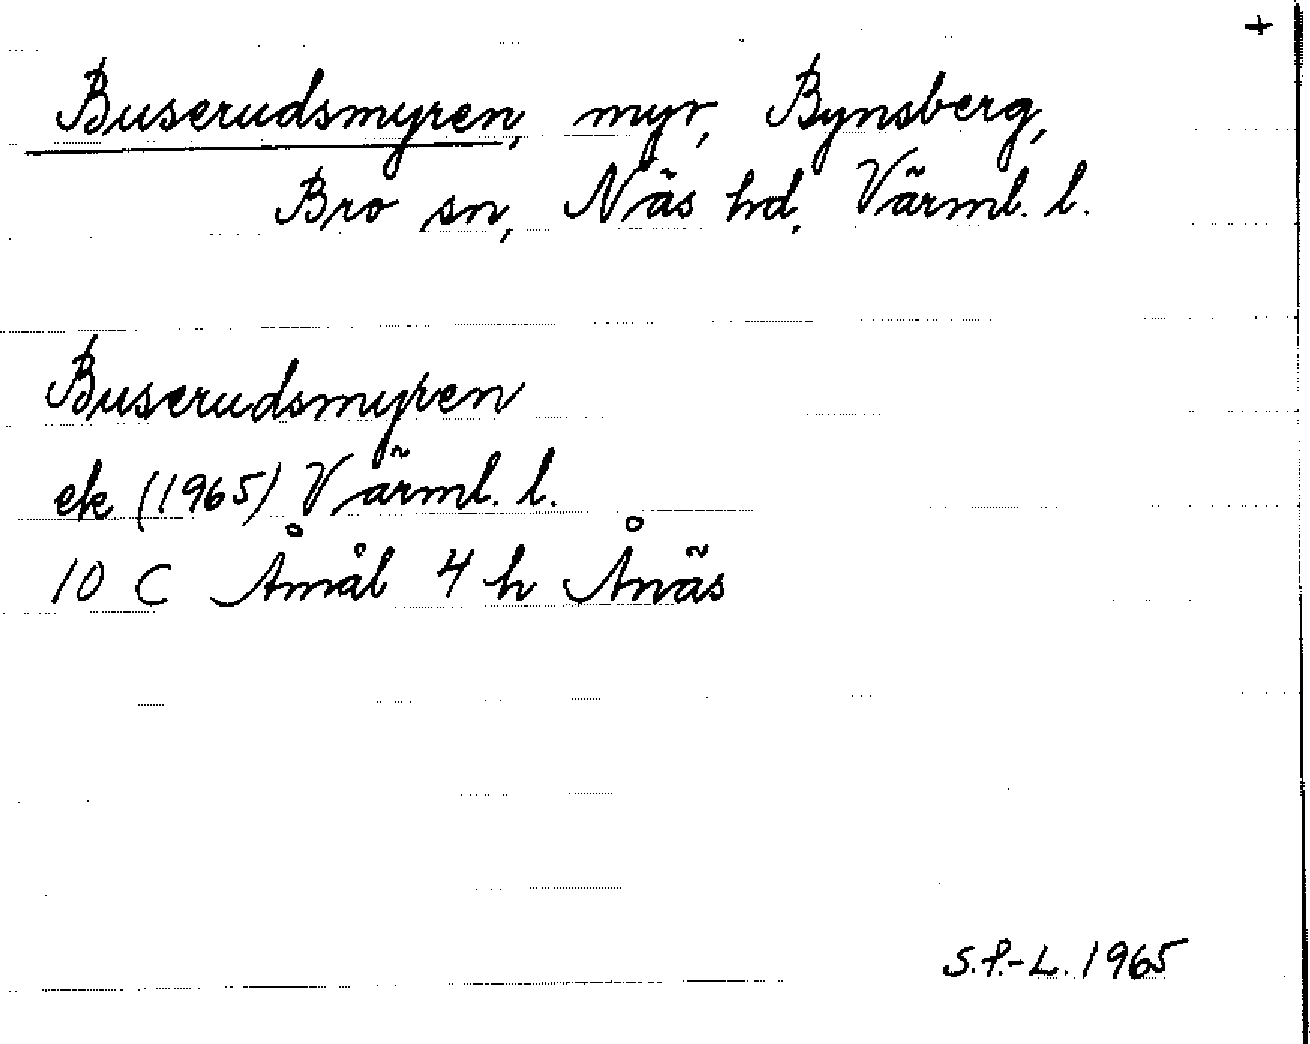 +
Buserudsmyren, myr, Bynsberg,
Bro sn, Näs hd, Värml. l.
Buserudsmyren
ek (1965) Värml. l.
10 C Åmål 4 h Ånäs
S.P.-L. 1965